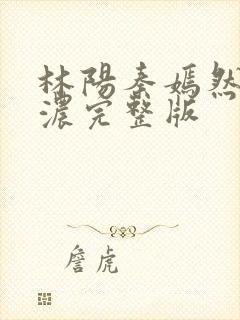 林陽秦嫣然
濃完整版
詹虎